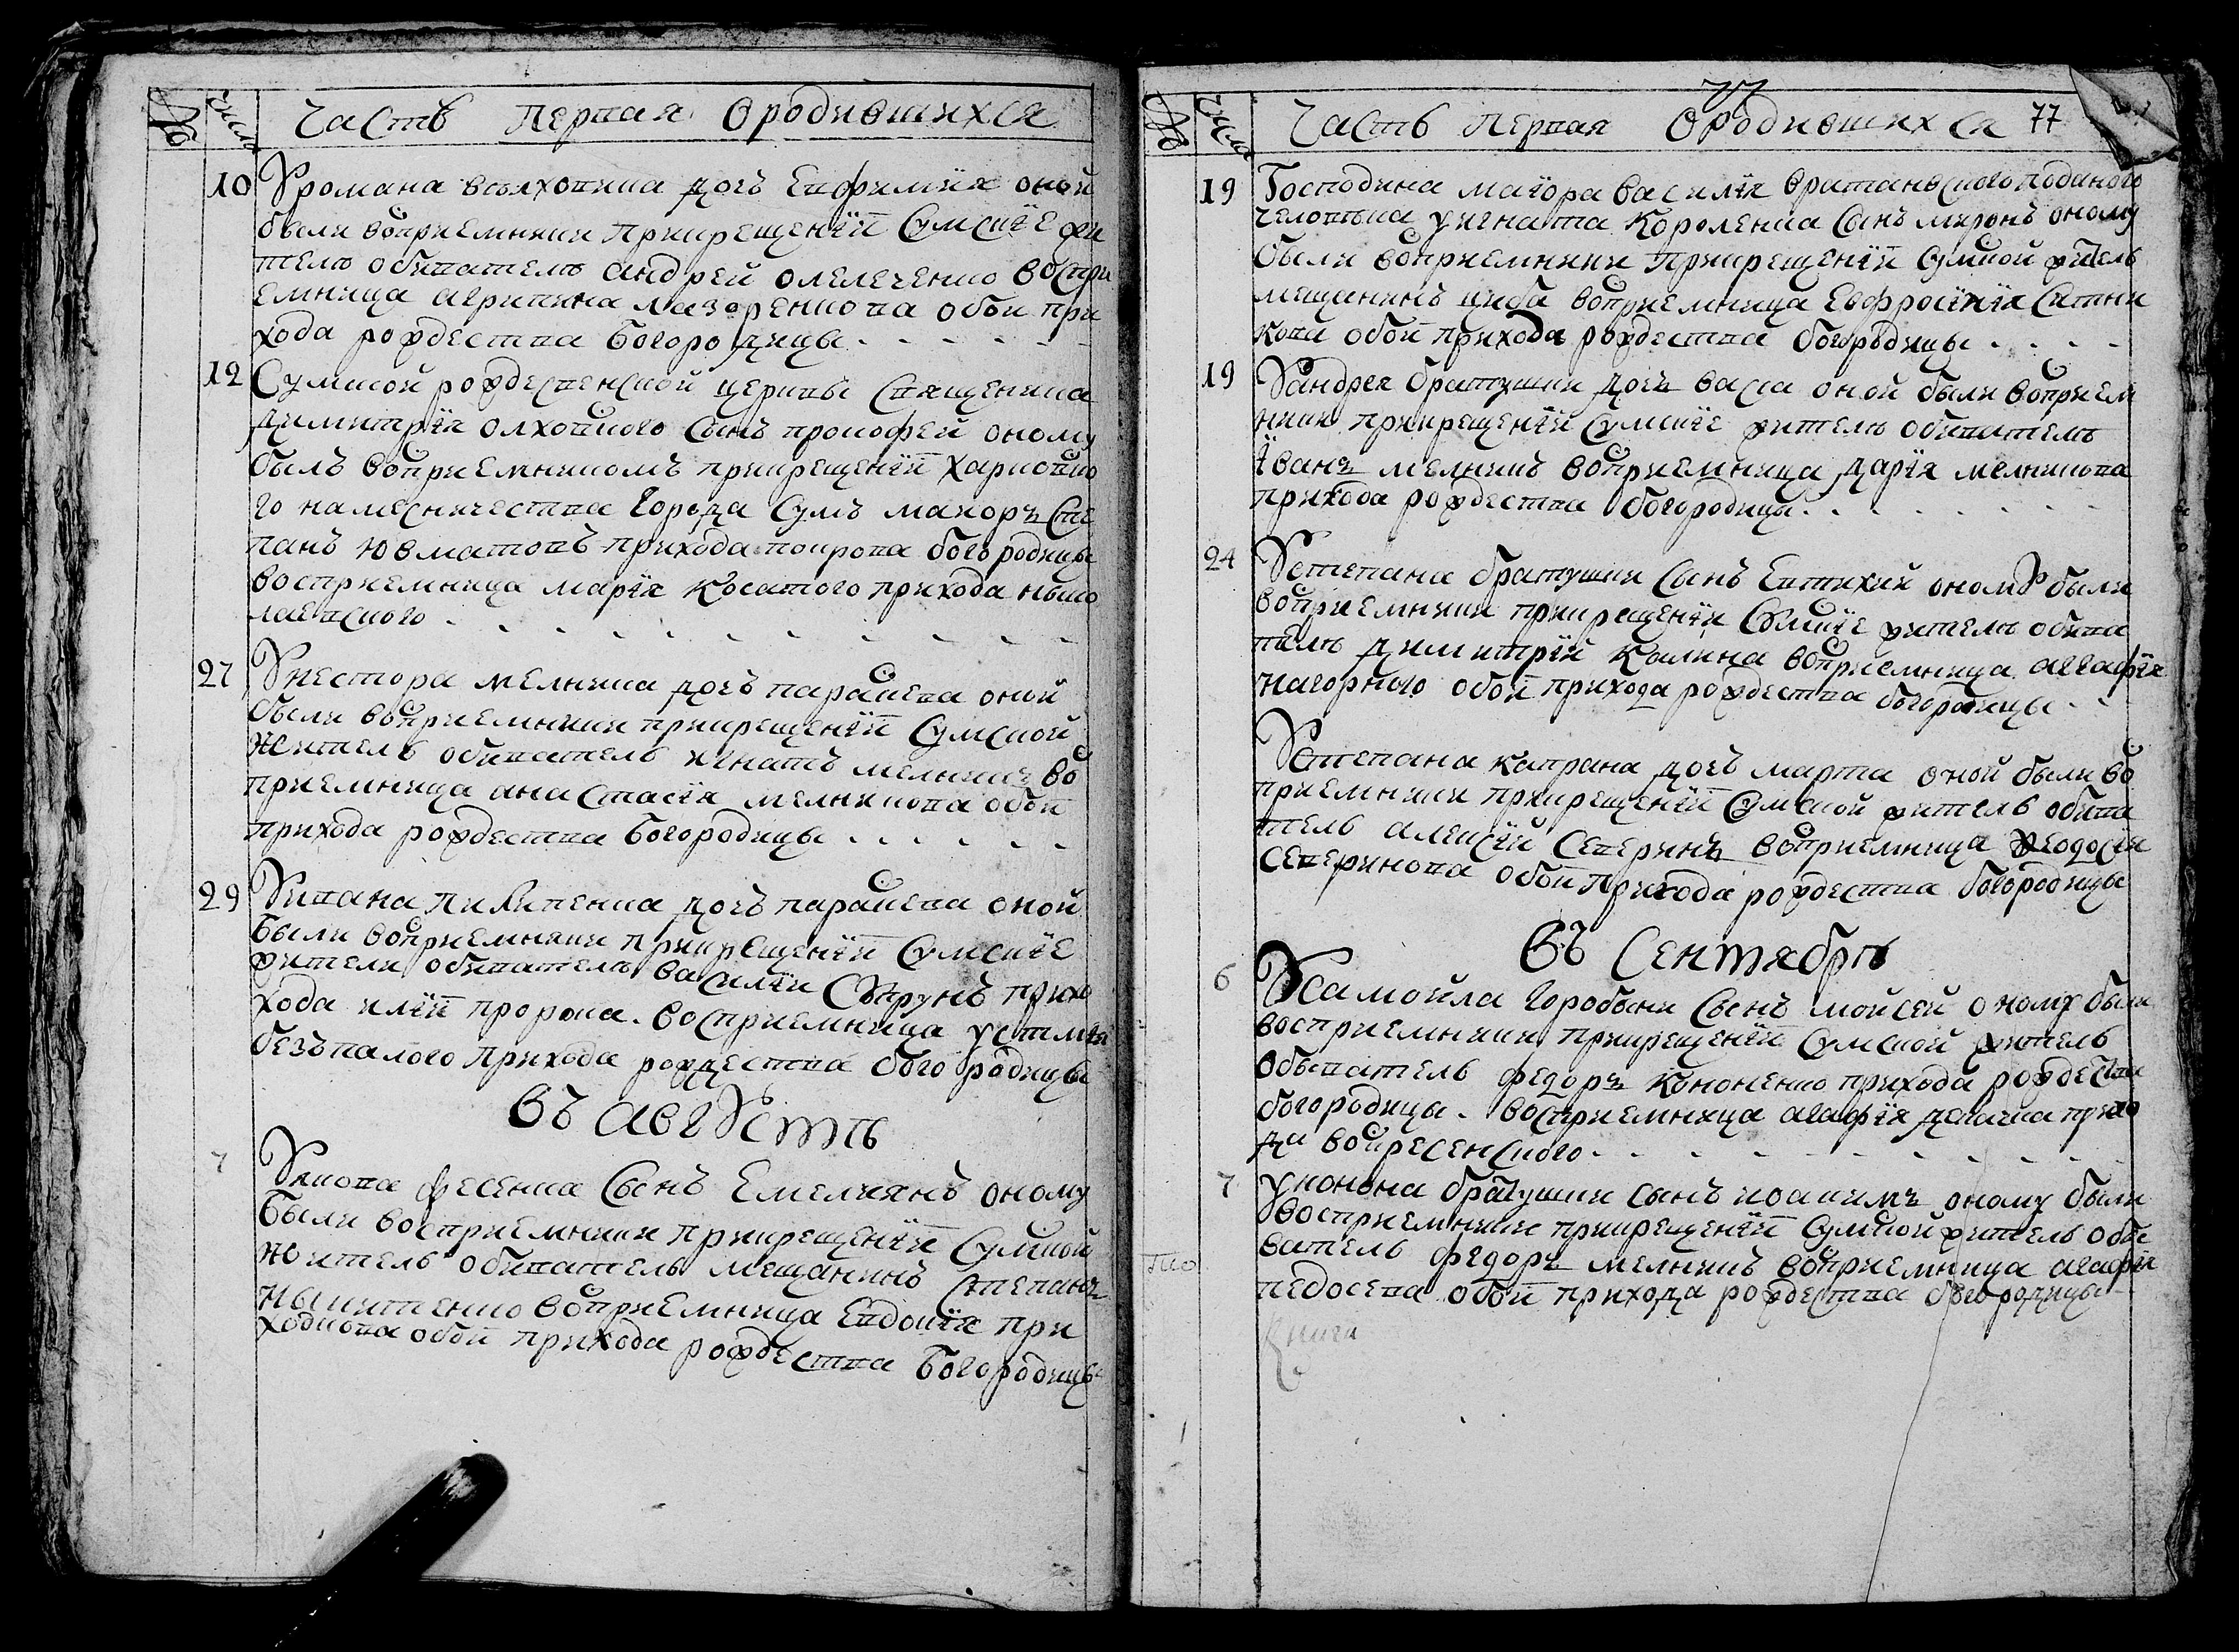 № числа Часть первая О родившихся
10 У романа вовкотина дочь Евфимия оной
были воприемники при крещении Сумские жи
тели обиватели андрей олелеченко воспри
емница агрипина лазоренкова обои при
хода рождества богородицы
12 Сумской рождественской церквы священика
димитрия олховского сынъ прокофей оному
былъ воприемникомъ при крещении харковско
го намесничества города Сумъ маиоръ Сте
панъ Ювматовъ прихода покрова богородицы
восприемница мария косатого прихода нико
лаевского
27 У нестора мелника дочь параскева оной
были воприемники при крещении Сумской
житель обиватель игнатъ мелникъ во
приемница анастасия мелникова обои
прихода рождества богородицы
29 У ивана пилипенка дочь параскева оной
были воприемники при крещении Сумские
жители обиватель василий Свирунъ прихо
хода илии пророка. восприемница устиния
безъпалого прихода рождества богородицы
въ августе
7 У якова фесенка сынъ Емелиянъ оному
были восприемники при крещении Сумской
житель обиватель мещанинъ степанъ
никитенко воприемница Евдокия при
ходкова обои прихода рождества богородицы
№ числа Часть первая О родившихся 77
19 Господина маиора василия братановского поданого
человека у игната короленка сынъ миронъ оному
были воприемники при крещении Сумской житель
мещанинъ циба воприемница Евфросиния Ситни
кова обои прихода рождества богородицы
19 У андрея братушки дочь васа оной были восприем
ники при крещении Сумские жители обиватели
иванъ мелникъ воприемница дария мелникова
прихода рождества богородицы
24 У степана братушки сынъ Евтихий оному были
воприемники при крещении Сумские жители обива
тели димитрий калина воприемница агафия
нагорного обои прихода рождества богородицы
У степана каправа дочь марта оной были во
приемники при крещении Сумской житель обива
тель алексий Северинъ воприемница феодосия
Северинова обои прихода рождества богородицы
въ Сентябре
6 У самойла горобъи сынъ мойсей оному были
восприемники при крещении Сумской житель
обыватель федоръ кононенко прихода рождества
богородицы. восприемница агафия прихо
да воскресенского
7 у конона братушки сынъ иоакимъ оному были
восприемники при крещении Сумской житель обы
ватель федоръ мелникъ воприемница агафия
федосева обои прихода рождества богородицы
книга